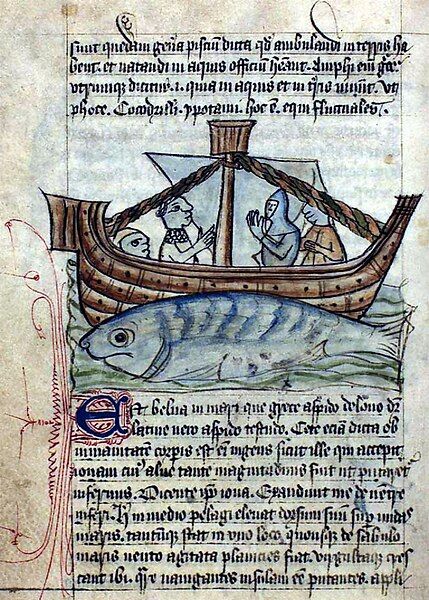 sunt quedam gen̄a pisciū dicta qd̄ ambulandi in terris ha
bent. et natandi in aquis officiū hēant. Amphi eni᷒ grec̄
utrūque dicitur .i. quia in aquis et in t̄ris uiuūt. Vt
phoce. Cocodrilli. ypotami. hoc ē. equi fluctuales.
Est belua in mari que grece aspido delone dr̄
latine uero aspido testudo. Cete eciā dicta ob
inmanitatē corpis est eni᷒ ingens sicut ille qui accepit
ionam cui᷒ aluꝰ tante magnitudinis fuit ut putaret᷑
infernus. Dicente ip̄o iona. Exaudiuit me de uētre
inferi. H̄ in medio pelagi eleuat dorsum suū suꝑ undas
maris. tantūque stat in uno loco. quousque de sabulo
maris uento agitata planicies fiat. uirgultaque cres
cant ibi. Qͬe nauigantes insulam eē putantes. appli